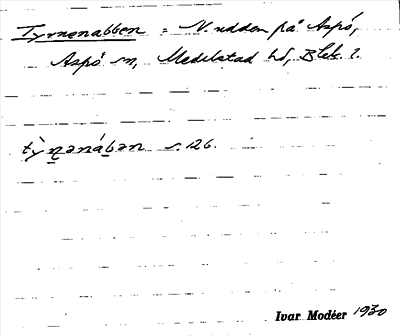 Tyrnenabben = N. udden på Aspö,
Aspö sn, Medelstad hd, Blek. l.
tỳṉənáḇən s. 126.
Ivar Modéer 1930